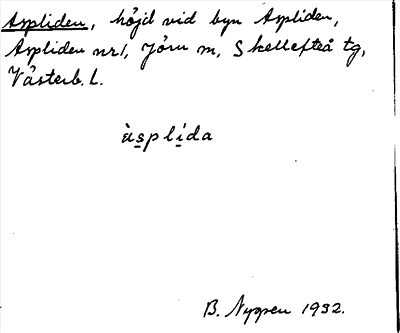 Aspliden, höjd vid byn Aspliden,
Aspliden nr 1, Jörn sn, Skellefteå tg,
Västerb. L.
àsplída
B. Nygren 1932.